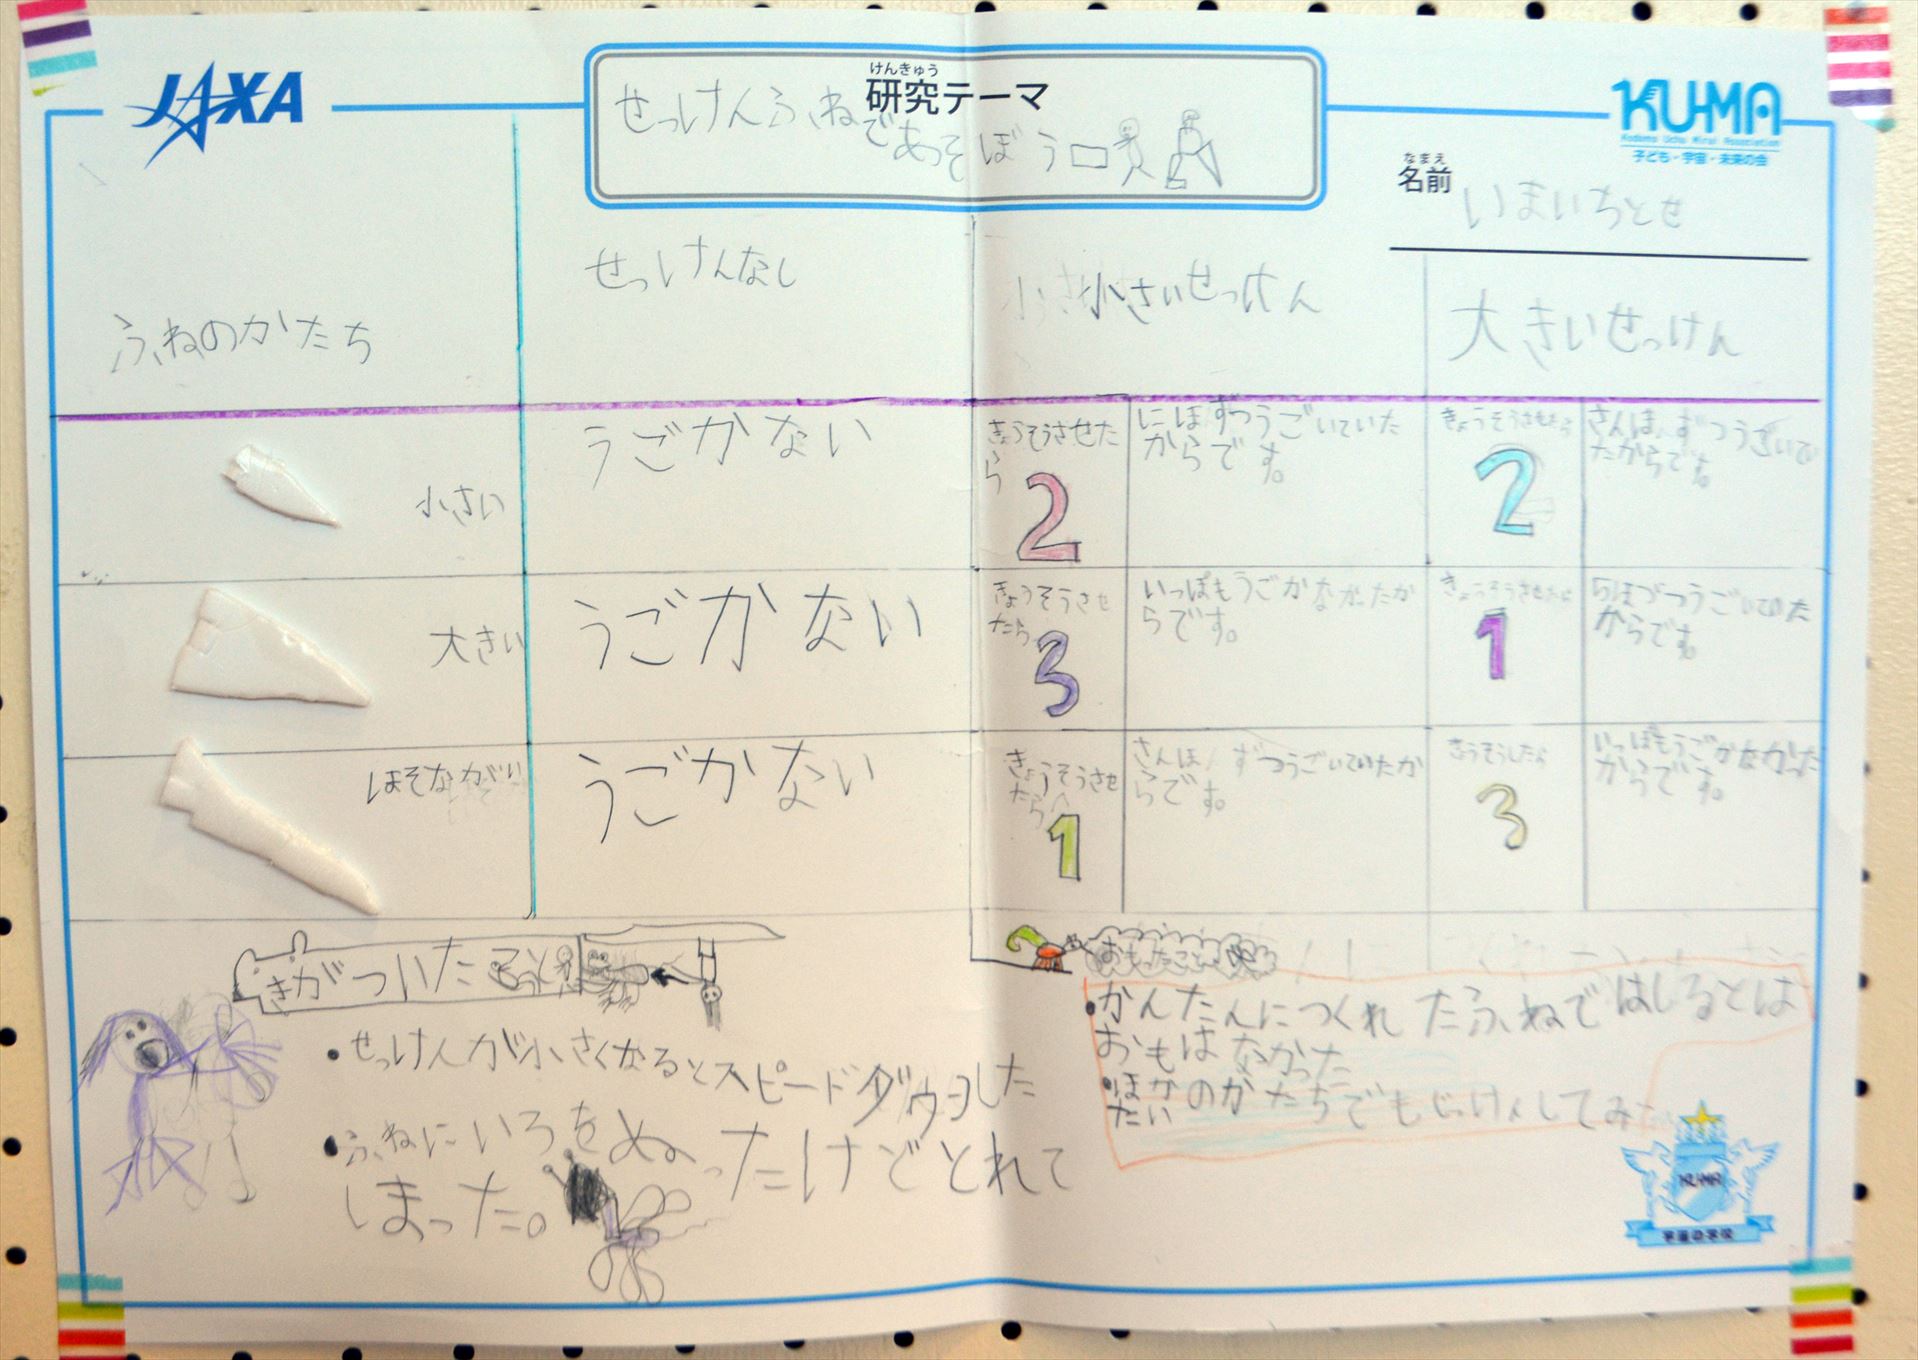 JAXA
けんきゅう
研究テーマ
せっけんふねであそぼう
KU-MA
Kodomo Uchu Mirai Association
子ども・宇宙・未来の会
なまえ
名前
いまいちとせ
ふねのかたち
せっけんなし
小さいせっけん
大きいせっけん
小さい
うごかない
きょうそうさせた
ら
2
にほずつうごいていた
からです。
きょうそうさせたら
2
さんほずつうごいてい
たからです。
大きい
うごかない
きょうそうさせ
たら
3
いっぽもうごかなかったか
らです。
きょうそうさせたら
1
5ほづつうごいていた
からです。
ほそながい
うごかない
きょうそうさせ
たら
1
さんほずつうごいていたか
らです。
きょうそうしたら
3
いっぽもうごかなかった
からです。
きがついたこと
・せっけんが小さくなるとスピードダウンした
・ふねにいろをぬったけどとれて
しまった。
おもったこと
・かんたんにつくれたふねではしるとは
おもはなかった
・ほかのかたちでもじっけんしてみ
たい
KU-MA
宇宙の学校